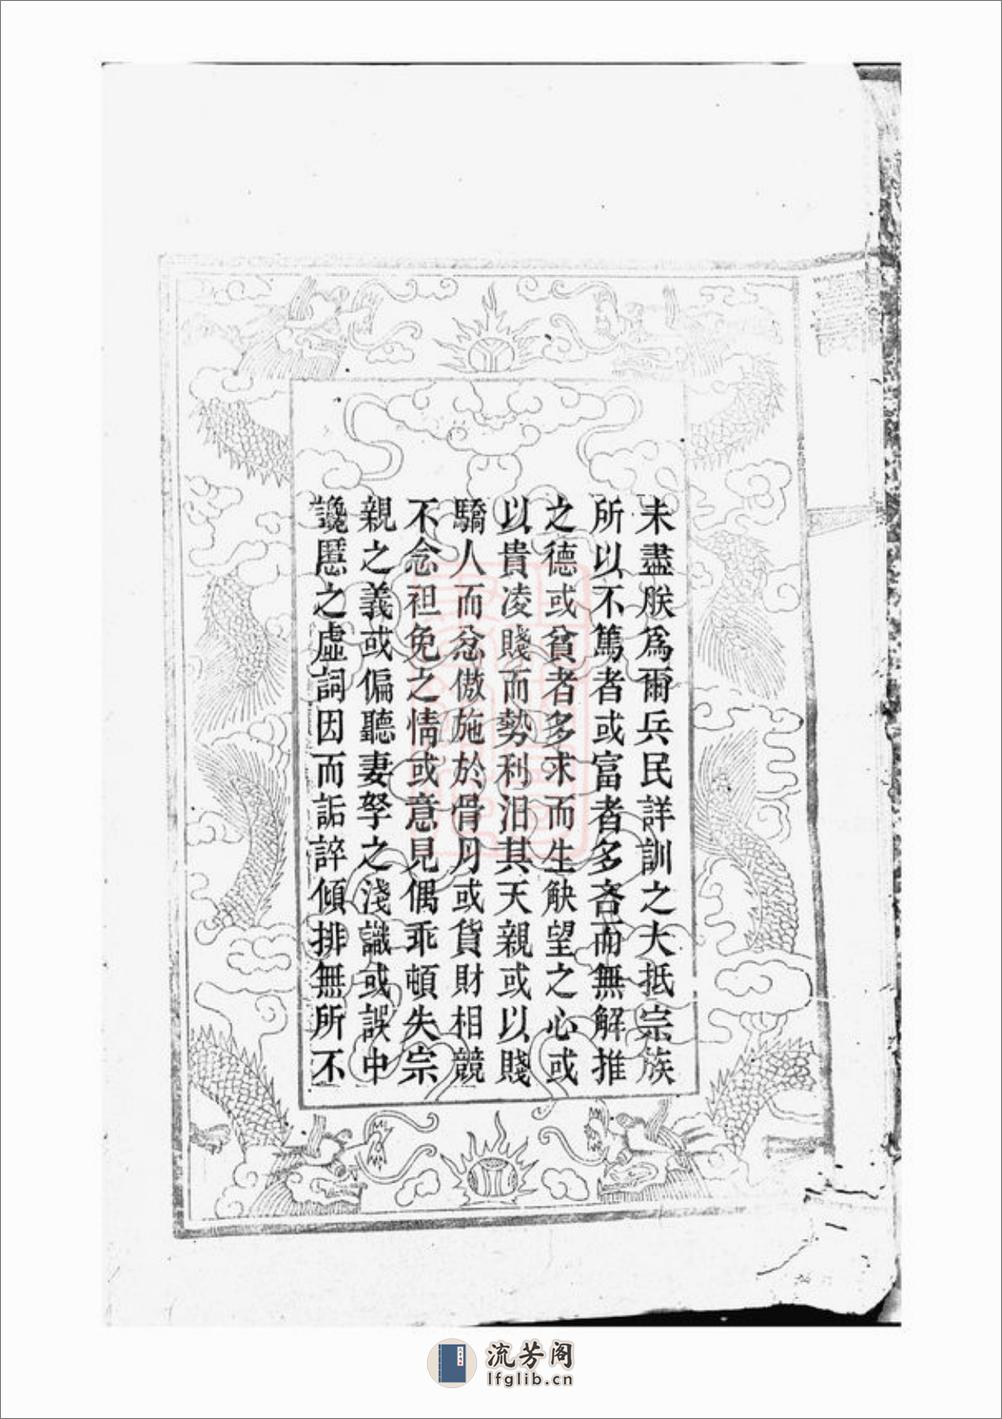 未盡朕爲爾兵民詳訓之大抵宗族
所以不篤者或富者多吝而無解推
之德或貧者多求而生觖望之心或
以貴凌賤而勢利汨其天親或以賤
驕人而忿傲施於骨月或貨財相競
不念袒免之情或意見偶乖頓失宗
親之義或偏聽妻孥之淺識或誤中
讒慝之虛詞因而詬誶傾排無所不
流芳阁
lfglib.cn